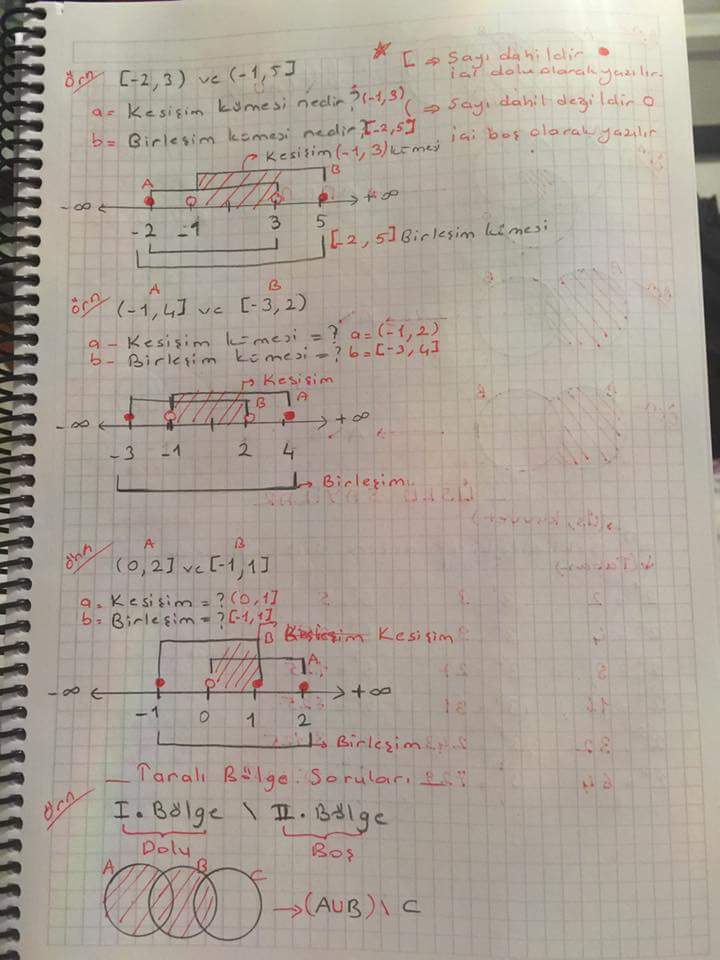 örn [-2,3) ve (-1,5]
* [ ⇒ sayı dahildir ●
içi dolu olarak yazılır.
a= Kesişim kümesi nedir? (-1,3)
( ⇒ sayı dahil değildir o
b= Birleşim kümesi nedir? [-2,5]
içi boş olarak yazılır
Kesişim (-1, 3) kümesi
A B
-∞ +∞
-2 -1 3 5
[-2, 5] Birleşim kümesi
A B
örn (-1,4] ve [-3,2)
a- Kesişim kümesi = ? a=(-1,2)
b- Birleşim kümesi = ? b=[-3,4]
Kesişim
B A
-∞ +∞
-3 -1 2 4
Birleşim
A B
örn (0,2] ve [-1,1]
a- Kesişim = ? (0,1]
b= Birleşim = ? [-1,1]
B Kesişim
A
-∞ +∞
-1 0 1 2
Birleşim
Taralı Bölge Soruları
örn I. Bölge \ II. Bölge
Dolu Boş
A B C
→ (AUB) \ C